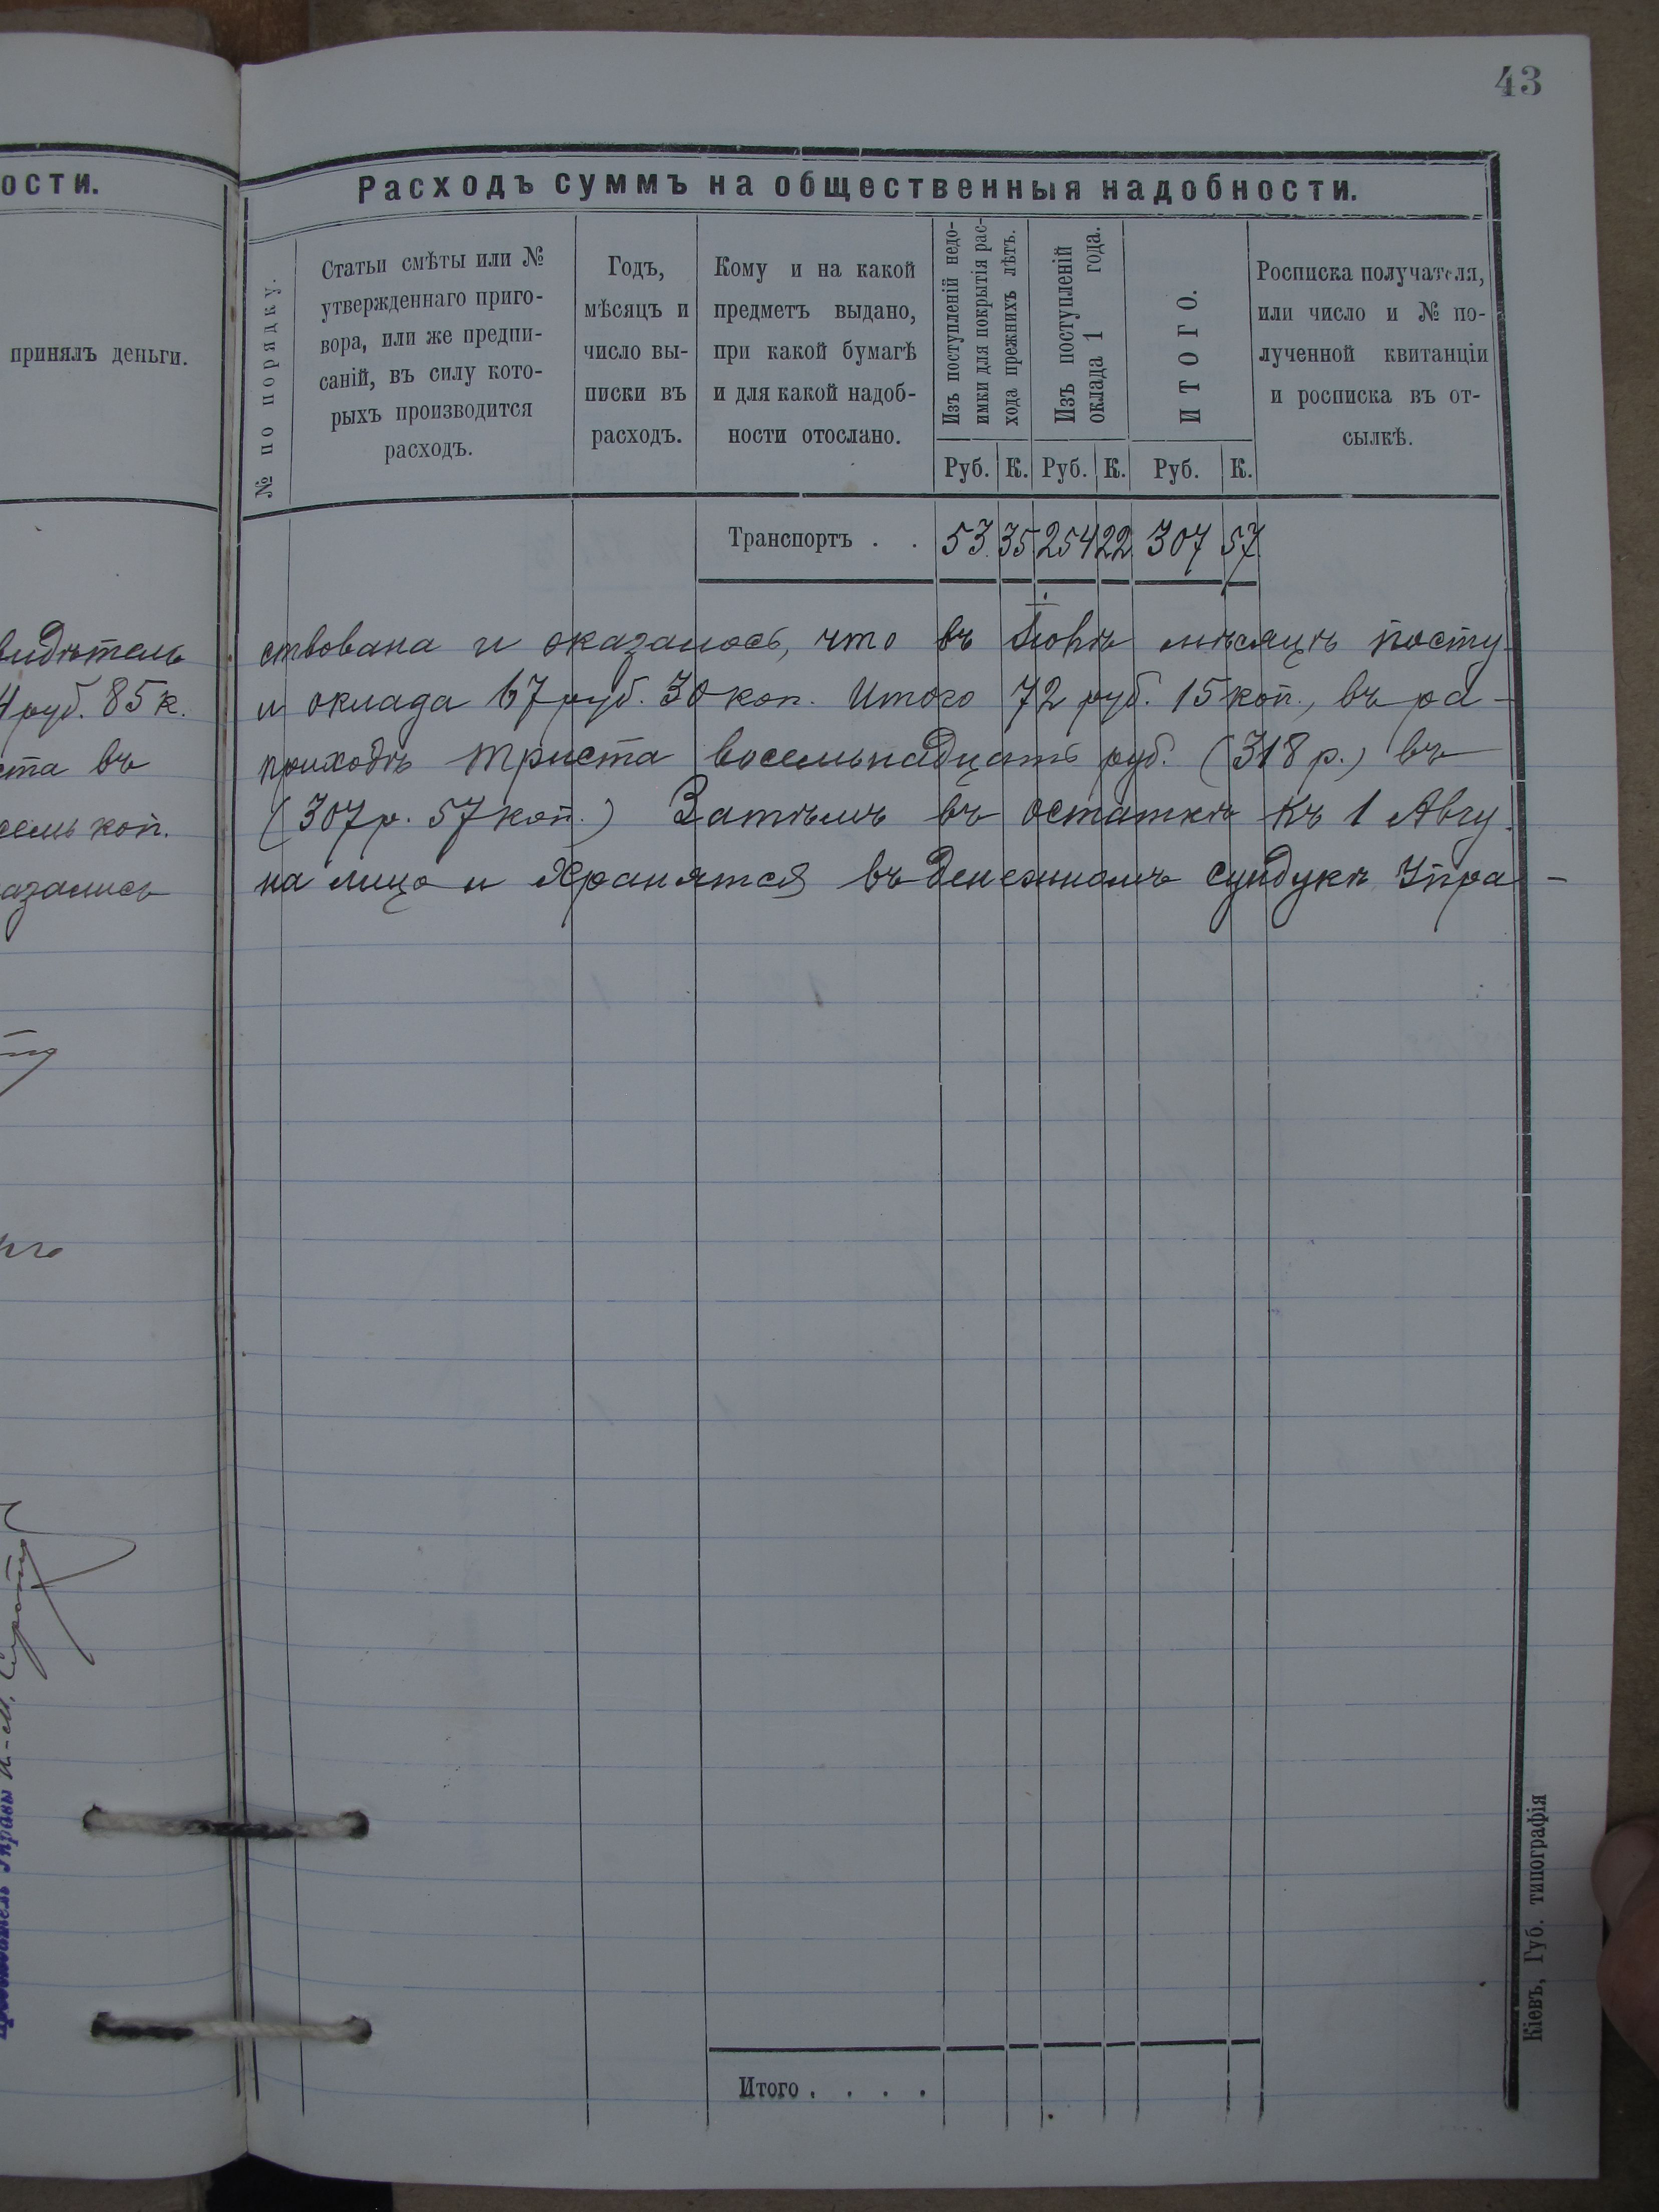 43
ости.
принялъ деньги.
видѣтель
4 руб. 85 к.
ста въ
семь коп.
азались
Расходъ суммъ на общественныя надобности.
№ по порядку.
Статьи смѣты или №
утвержденнаго приго-
вора, или же предпи-
саній, въ силу кото-
рыхъ производится
расходъ.
Годъ,
мѣсяцъ и
число вы-
писки въ
расходъ.
Кому и на какой
предметъ выдано,
при какой бумагѣ
и для какой надоб-
ности отослано.
Изъ поступленій недо-
имки для покрытія рас-
хода прежнихъ лѣтъ.
Изъ поступленій
оклада 1 года.
ИТОГО.
Росписка получателя,
или число и № по-
лученной квитанціи
и росписка въ от-
сылкѣ.
Руб. К. Руб. К. Руб. К.
Транспортъ . . 53 35 254 22 307 57
ствована и оказалось, что въ Іюлѣ мѣсяцѣ посту-
и оклада 67 руб. 30 коп. Итого 72 руб. 15 коп., въ ра-
приходѣ триста восемьнадцать руб. (318 р.) въ
(307 р. 57 коп.) Затѣмъ въ остаткѣ къ 1 Авгу-
на лицо и хранятся въ денежномъ сундукѣ Упра-
Итого . . . .
Кіевъ, Губ. типографія